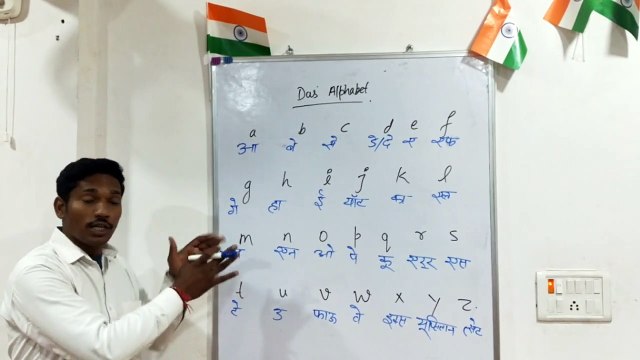 Das Alphabet
a b c d e f
आ बे से डे/दे ए एफ
g h i j k l
गे हा ई यॉट का एल
m n o p q r s
एन ओ पे कू एरर एस
t u v w x y z
टे उ फाऊ वे इक्स यूप्सिलन त्सेट